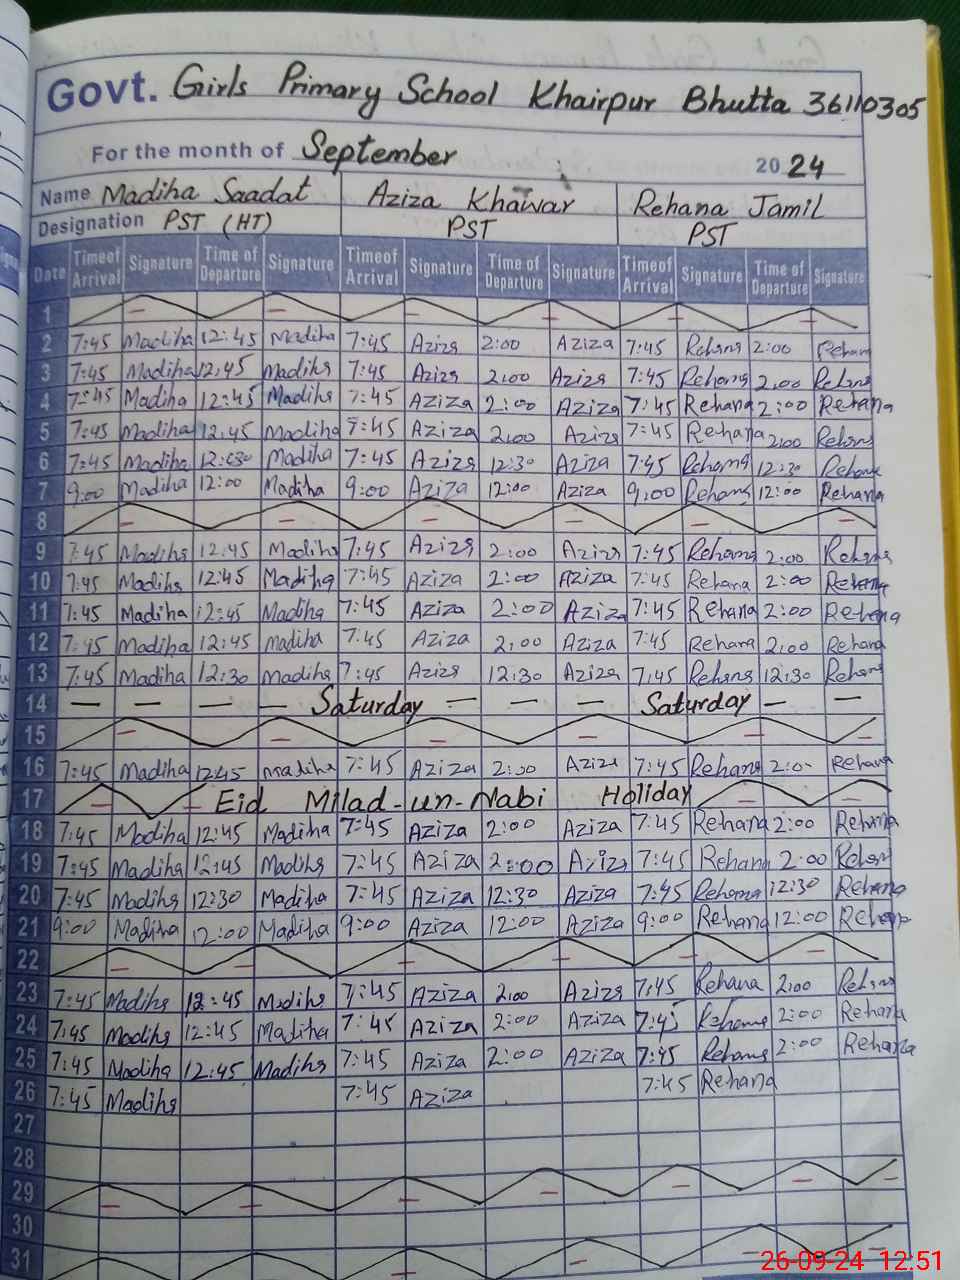 Govt. Girls Primary School Khairpur Bhutta 36110305
For the month of September 2024
Name Madiha Saadat Aziza Khawar Rehana Jamil
Designation PST (HT) PST PST
Date Timeof Arrival Signature Time of Departure Signature Timeof Arrival Signature Time of Departure Signature Timeof Arrival Signature Time of Departure Signature
1 — — — — — —
2 7:45 Madiha 12:45 Madiha 7:45 Aziza 2:00 Aziza 7:45 Rehana 2:00 Rehana
3 7:45 Madiha 12,45 Madiha 7:45 Aziza 2,00 Aziza 7:45 Rehana 2,00 Rehana
4 7:45 Madiha 12:45 Madiha 7:45 Aziza 2:00 Aziza 7:45 Rehana 2:00 Rehana
5 7:45 Madiha 12,45 Madiha 7:45 Aziza 2,00 Aziza 7:45 Rehana 2,00 Rehana
6 7:45 Madiha Madiha 7:45 Aziza 12:30 Aziza 7:45 Rehana 12:30 Rehana
7 9:00 Madiha 12:00 Madiha 9:00 Aziza 12:00 Aziza 9,00 Rehana 12:00 Rehana
8 — — — — — —
9 7:45 Madiha 12,45 Madiha 7:45 Aziza 2:00 Aziza 7:45 Rehana 2:00 Rehana
10 7:45 Madiha 12:45 Madiha 7:45 Aziza 2:00 Aziza 7:45 Rehana 2:00 Rehana
11 7:45 Madiha 12:45 Madiha 7:45 Aziza 2:00 Aziza 7:45 Rehana 2:00 Rehana
12 7:45 Madiha 12:45 Madiha 7:45 Aziza 2,00 Aziza 7:45 Rehana 2,00 Rehana
13 7:45 Madiha 12:30 Madiha 7:45 Aziza 12:30 Aziza 7,45 Rehana 12:30 Rehana
14 — — — — Saturday — — — Saturday — —
15 — — — — —
16 7:45 Madiha 1245 Madiha 7:45 Aziza 2:00 Aziza 7:45 Rehana 2:0- Rehana
17 — — Eid Milad-un-Nabi Holiday — —
18 7:45 Madiha 12:45 Madiha 7:45 Aziza 2:00 Aziza 7:45 Rehana 2:00 Rehana
19 7:45 Madiha 12:45 Madiha 7:45 Aziza 2:00 Aziza 7:45 Rehana 2:00 Rehana
20 7:45 Madiha 12:30 Madiha 7:45 Aziza 12:30 Aziza 7:45 Rehana 12:30 Rehana
21 9:00 Madiha 12:00 Madiha 9:00 Aziza 12:00 Aziza 9:00 Rehana 12:00 Rehana
22 — — — — — —
23 7:45 Madiha 12:45 Madiha 7:45 Aziza 2:00 Aziza 7:45 Rehana 2:00 Rehana
24 7:45 Madiha 12:45 Madiha 7:45 Aziza 2:00 Aziza 7:45 Rehana 2:00 Rehana
25 7:45 Madiha 12:45 Madiha 7:45 Aziza 2:00 Aziza 7:45 Rehana 2:00 Rehana
26 7:45 Madiha 7:45 Aziza 7:45 Rehana
27
28
29 — — — — — — —
30
31 — — — — — —
26-09-24 12:51